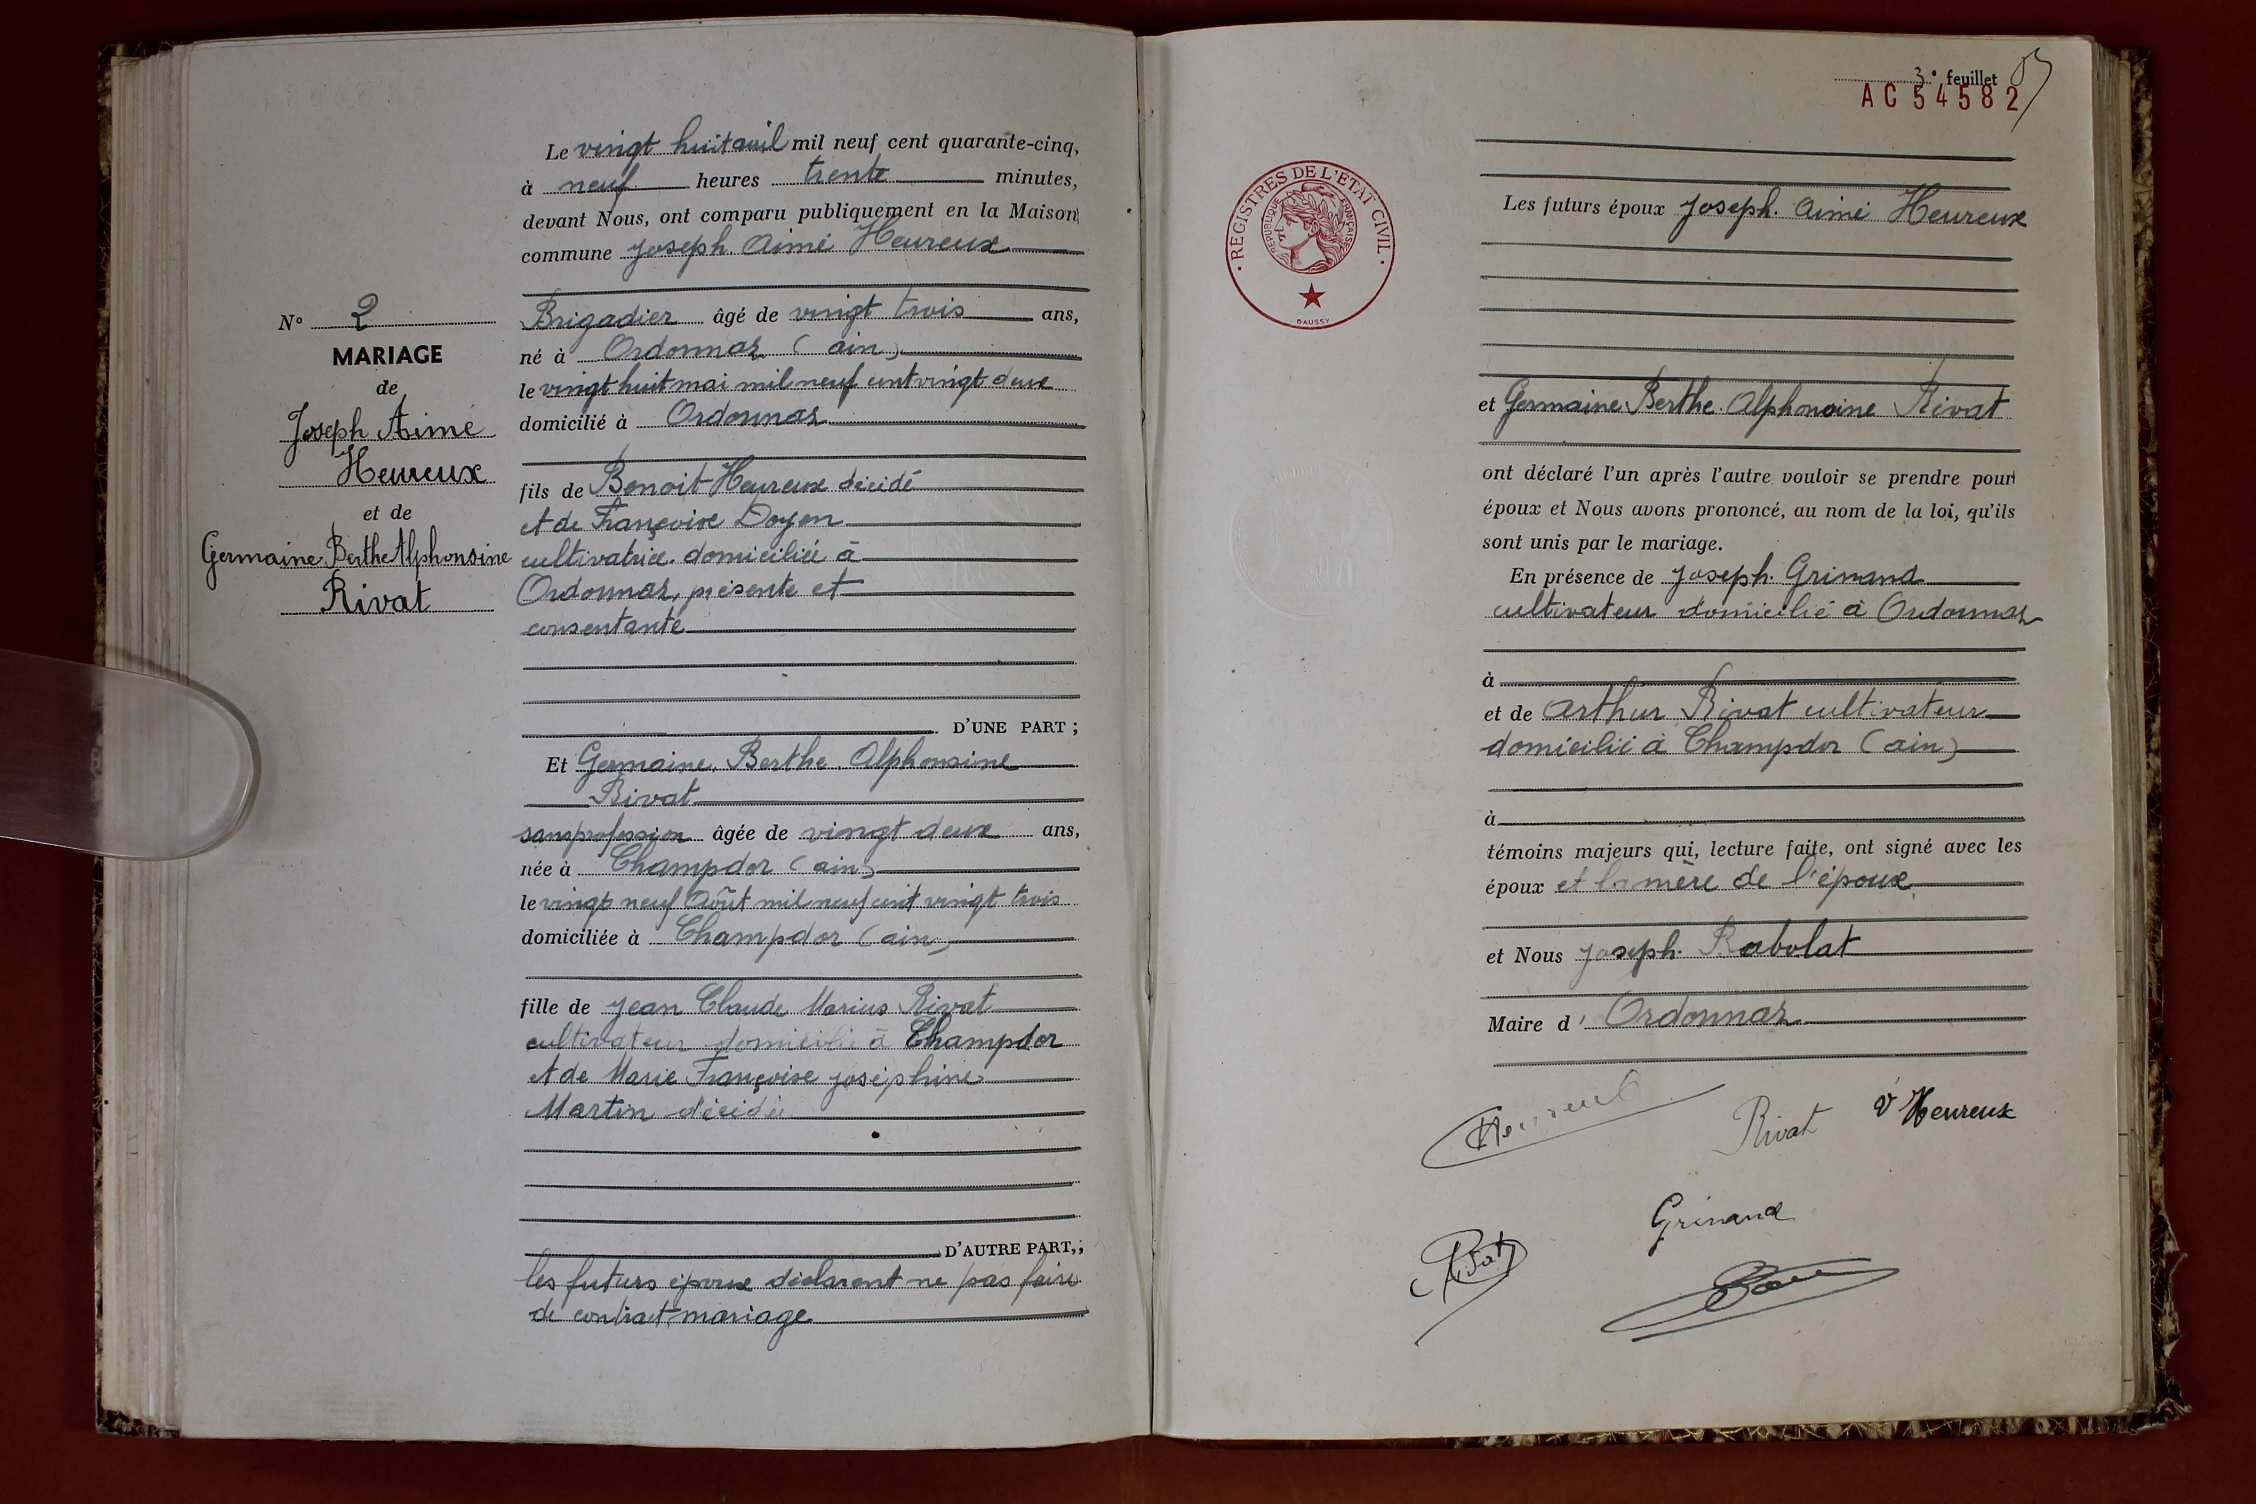 Le vingt huit avril mil neuf cent quarante-cinq,
à neuf heures trente minutes,
devant Nous, ont comparu publiquement en la Maison
commune Joseph Aimé Heureux
N° 2
MARIAGE
de
Joseph Aimé
Heureux
et de
Germaine Berthe Alphonsine
Rivat
Brigadier âgé de vingt trois ans,
né à Ordonnaz (ain)
le vingt huit mai mil neuf cent vingt deux
domicilié à Ordonnaz
fils de Benoit Heureux décidé
et de Françoise Doyen
cultivatrice domiciliée à
Ordonnaz, présente et
consentante
D'UNE PART ;
Et Germaine Berthe Alphonsine
Rivat
sans profession âgée de vingt deux ans,
née à Champdor (ain)
le vingt neuf Août mil neuf cent vingt trois
domiciliée à Champdor (ain)
fille de Jean Claude Marius Rivat
cultivateur domicilié à Champdor
et de Marie Françoise Joséphine
Martin décidée
D'AUTRE PART, ;
les futurs époux déclarent ne pas faire
de contrat mariage
3e feuillet
AC 54582
REGISTRES DE L'ETAT CIVIL
REPUBLIQUE FRANÇAISE
DAUSSY
Les futurs époux Joseph Aimé Heureux
et Germaine Berthe Alphonsine Rivat
ont déclaré l'un après l'autre vouloir se prendre pour
époux et Nous avons prononcé, au nom de la loi, qu'ils
sont unis par le mariage.
En présence de Joseph Grinand
cultivateur domicilié à Ordonnaz
à
et de Arthur Rivat cultivateur
domicilié à Champdor (ain)
à
témoins majeurs qui, lecture faite, ont signé avec les
époux et la mère de l'époux
et Nous Joseph Rabolat
Maire d' Ordonnaz
Heureux
Rivat
V Heureux
Grinand
Rivat